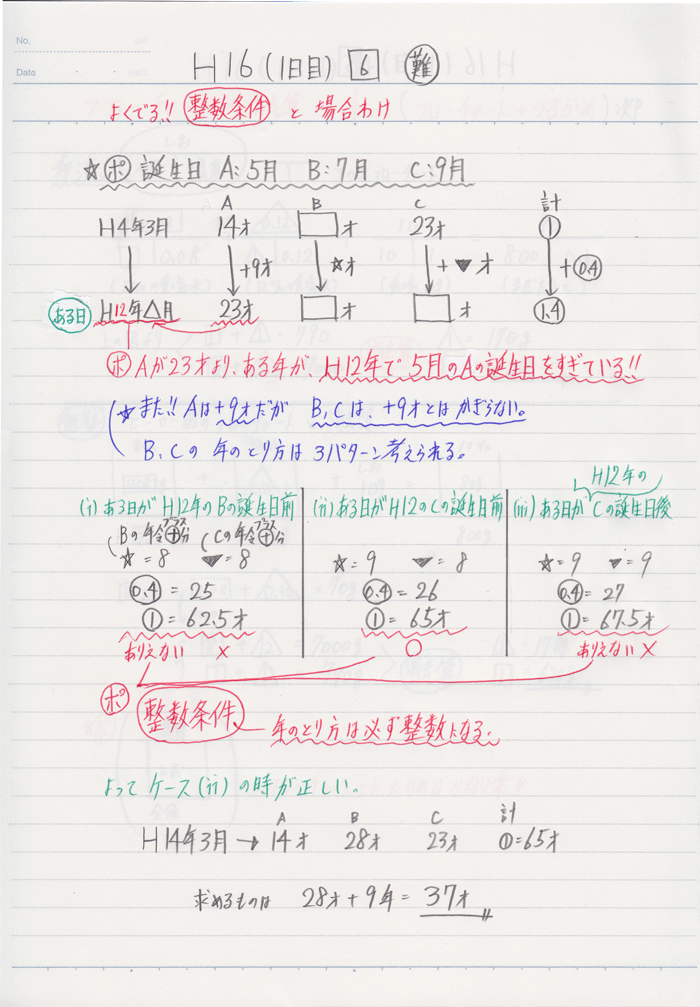 No.
Date
H16(1日目) 6 難
よくでる!! 整数条件 と 場合わけ
☆ポ 誕生日 A:5月 B:7月 C:9月
A B C 計
H4年3月 14才 □才 23才 ①
+9才 ☆才 +▼才 +0.4
ある日 H12年△月 23才 □才 □才 1.4
ポ Aが23才より、ある年が、H12年で 5月のAの誕生日をすぎている!!
☆また!! Aは+9才だが B,Cは、+9才とは かぎらない。
B、Cの 年のとり方は 3パターン考えられる。
(i) ある日が H12年のBの誕生日前
Bの年令プラス+分 Cの年令プラス+分
☆=8 ▼=8
0.4=25
①=62.5才
ありえない ×
(ii) ある日が H12のCの誕生日前
☆=9 ▼=8
0.4=26
①=65才
○
H12年の
(iii) ある日が Cの誕生日後
☆=9 ▼=9
0.4=27
①=67.5才
ありえない ×
ポ 整数条件、年のとり方は必ず整数になる。
よって ケース(ii)の時が正しい。
A B C 計
H14年3月→14才 28才 23才 ①=65才
求めるものは 28才+9年=37才